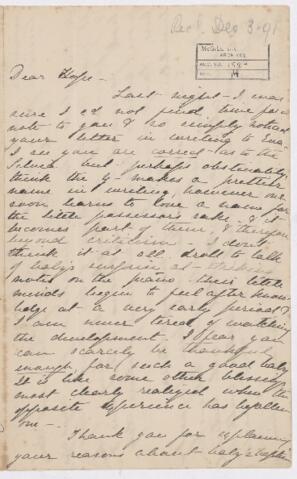 Recd. Dec 3-91
Dear Hope -
Last night - I was
sure I should not find time for a
note to you & so simply noticed
your letter in writing to
I see you are correct as to the
but perhaps obstinately
think the y makes a prettier
name in writing however one
soon learns to love a name for
the little possessor's sake & it
becomes part of them, & therefore
beyond criticism - I don't
think it at all droll to talk
of baby's surprise at striking
notes on the piano. Their little
minds begin to feel after know-
ledge at a very early period &
I am never tired of watching
the development - I fear you
can scarcely be thankful
enough for such a good baby
It is like some other blessings
most clearly realized when the
opposite experience has befallen
one -
Thank you for explaining
your reasons about baby's baptism